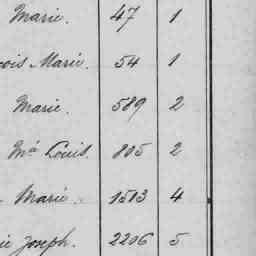 Marie. 47 1
çois Marie. 54 1
Marie. 589 2
Mª Louis. 805 2
Marie. 1513 4
ie Joseph. 2206 5